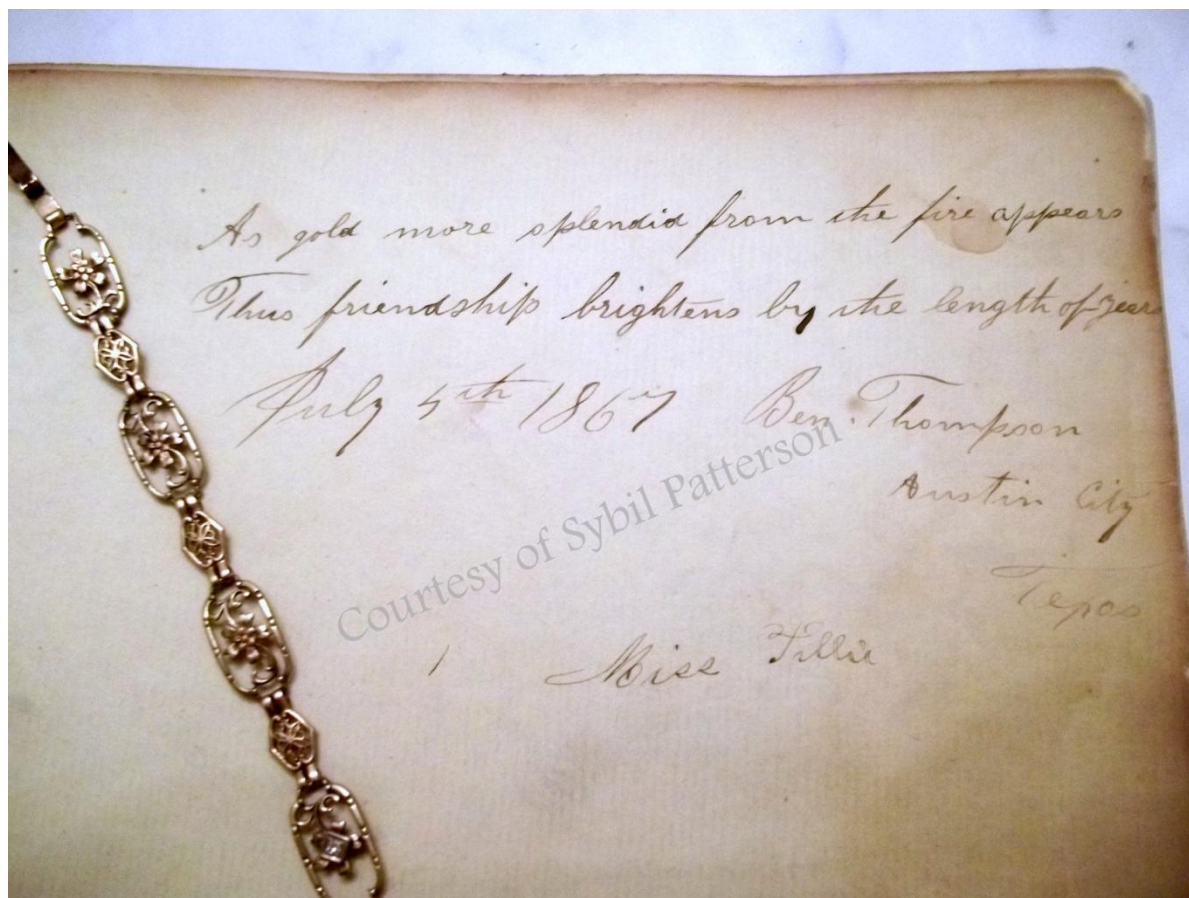 As gold more splendid from the fire appears
Thus friendship brightens by the length of years
July 5th 1867 Ben. Thompson
Austin City
Texas
Courtesy of Sybil Patterson
Miss Tillie